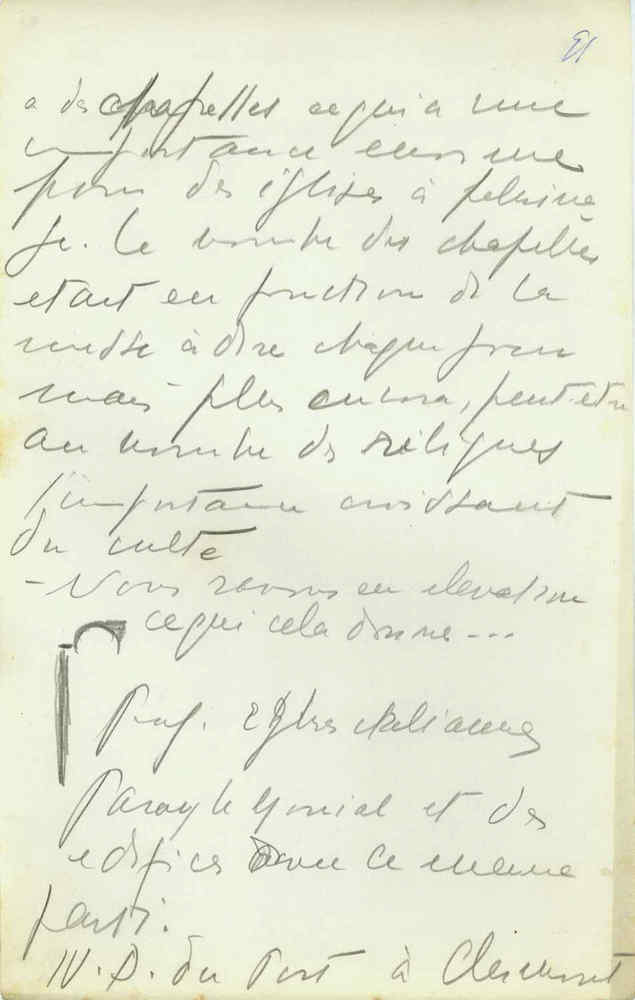 21
a des chapelles ce qui a une
importance enorme
pour des églises à pelerina
ge. Le nombre des chapelles
etait en fonction de la
messe à dire chaque jour
mais plus encore, peut-etre
au nombre des reliques
l'importance croissant
du culte
- Nous savons en elevation
ce que cela donne ---
Proj. Eglises italiennes
Paray le Monial et des
edifices avec ce meme
parti.
N. D. du Port à Clermont